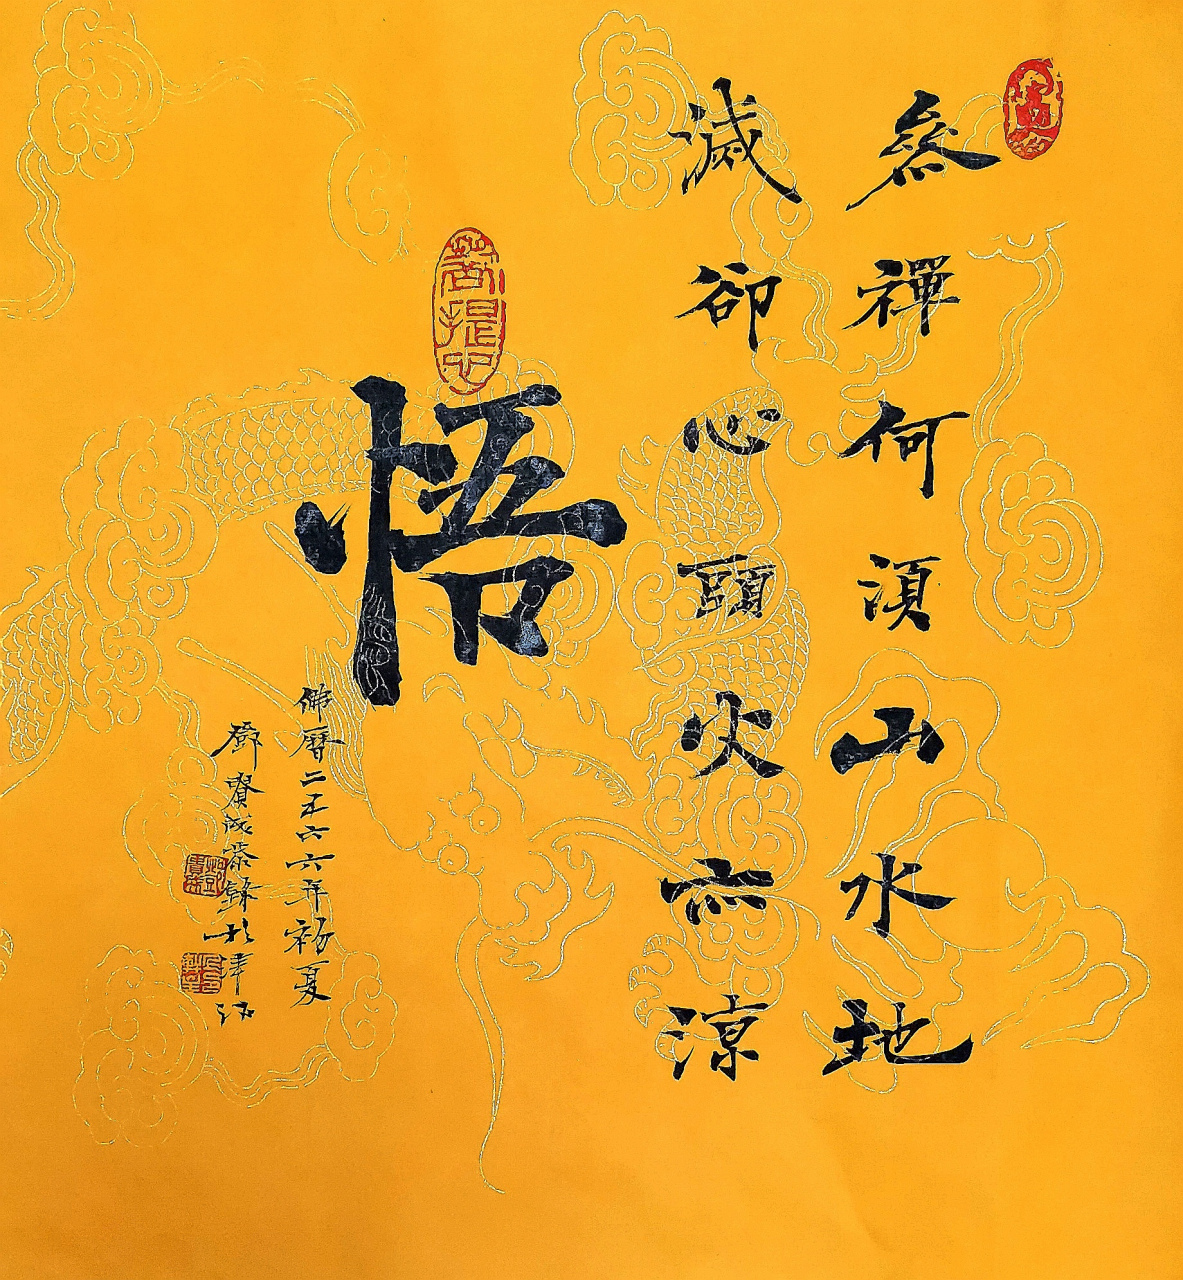 參禪何須山水地
滅卻心頭火亦涼
菩提心
悟
佛曆二五六六年初夏
鄧 成恭錄於津